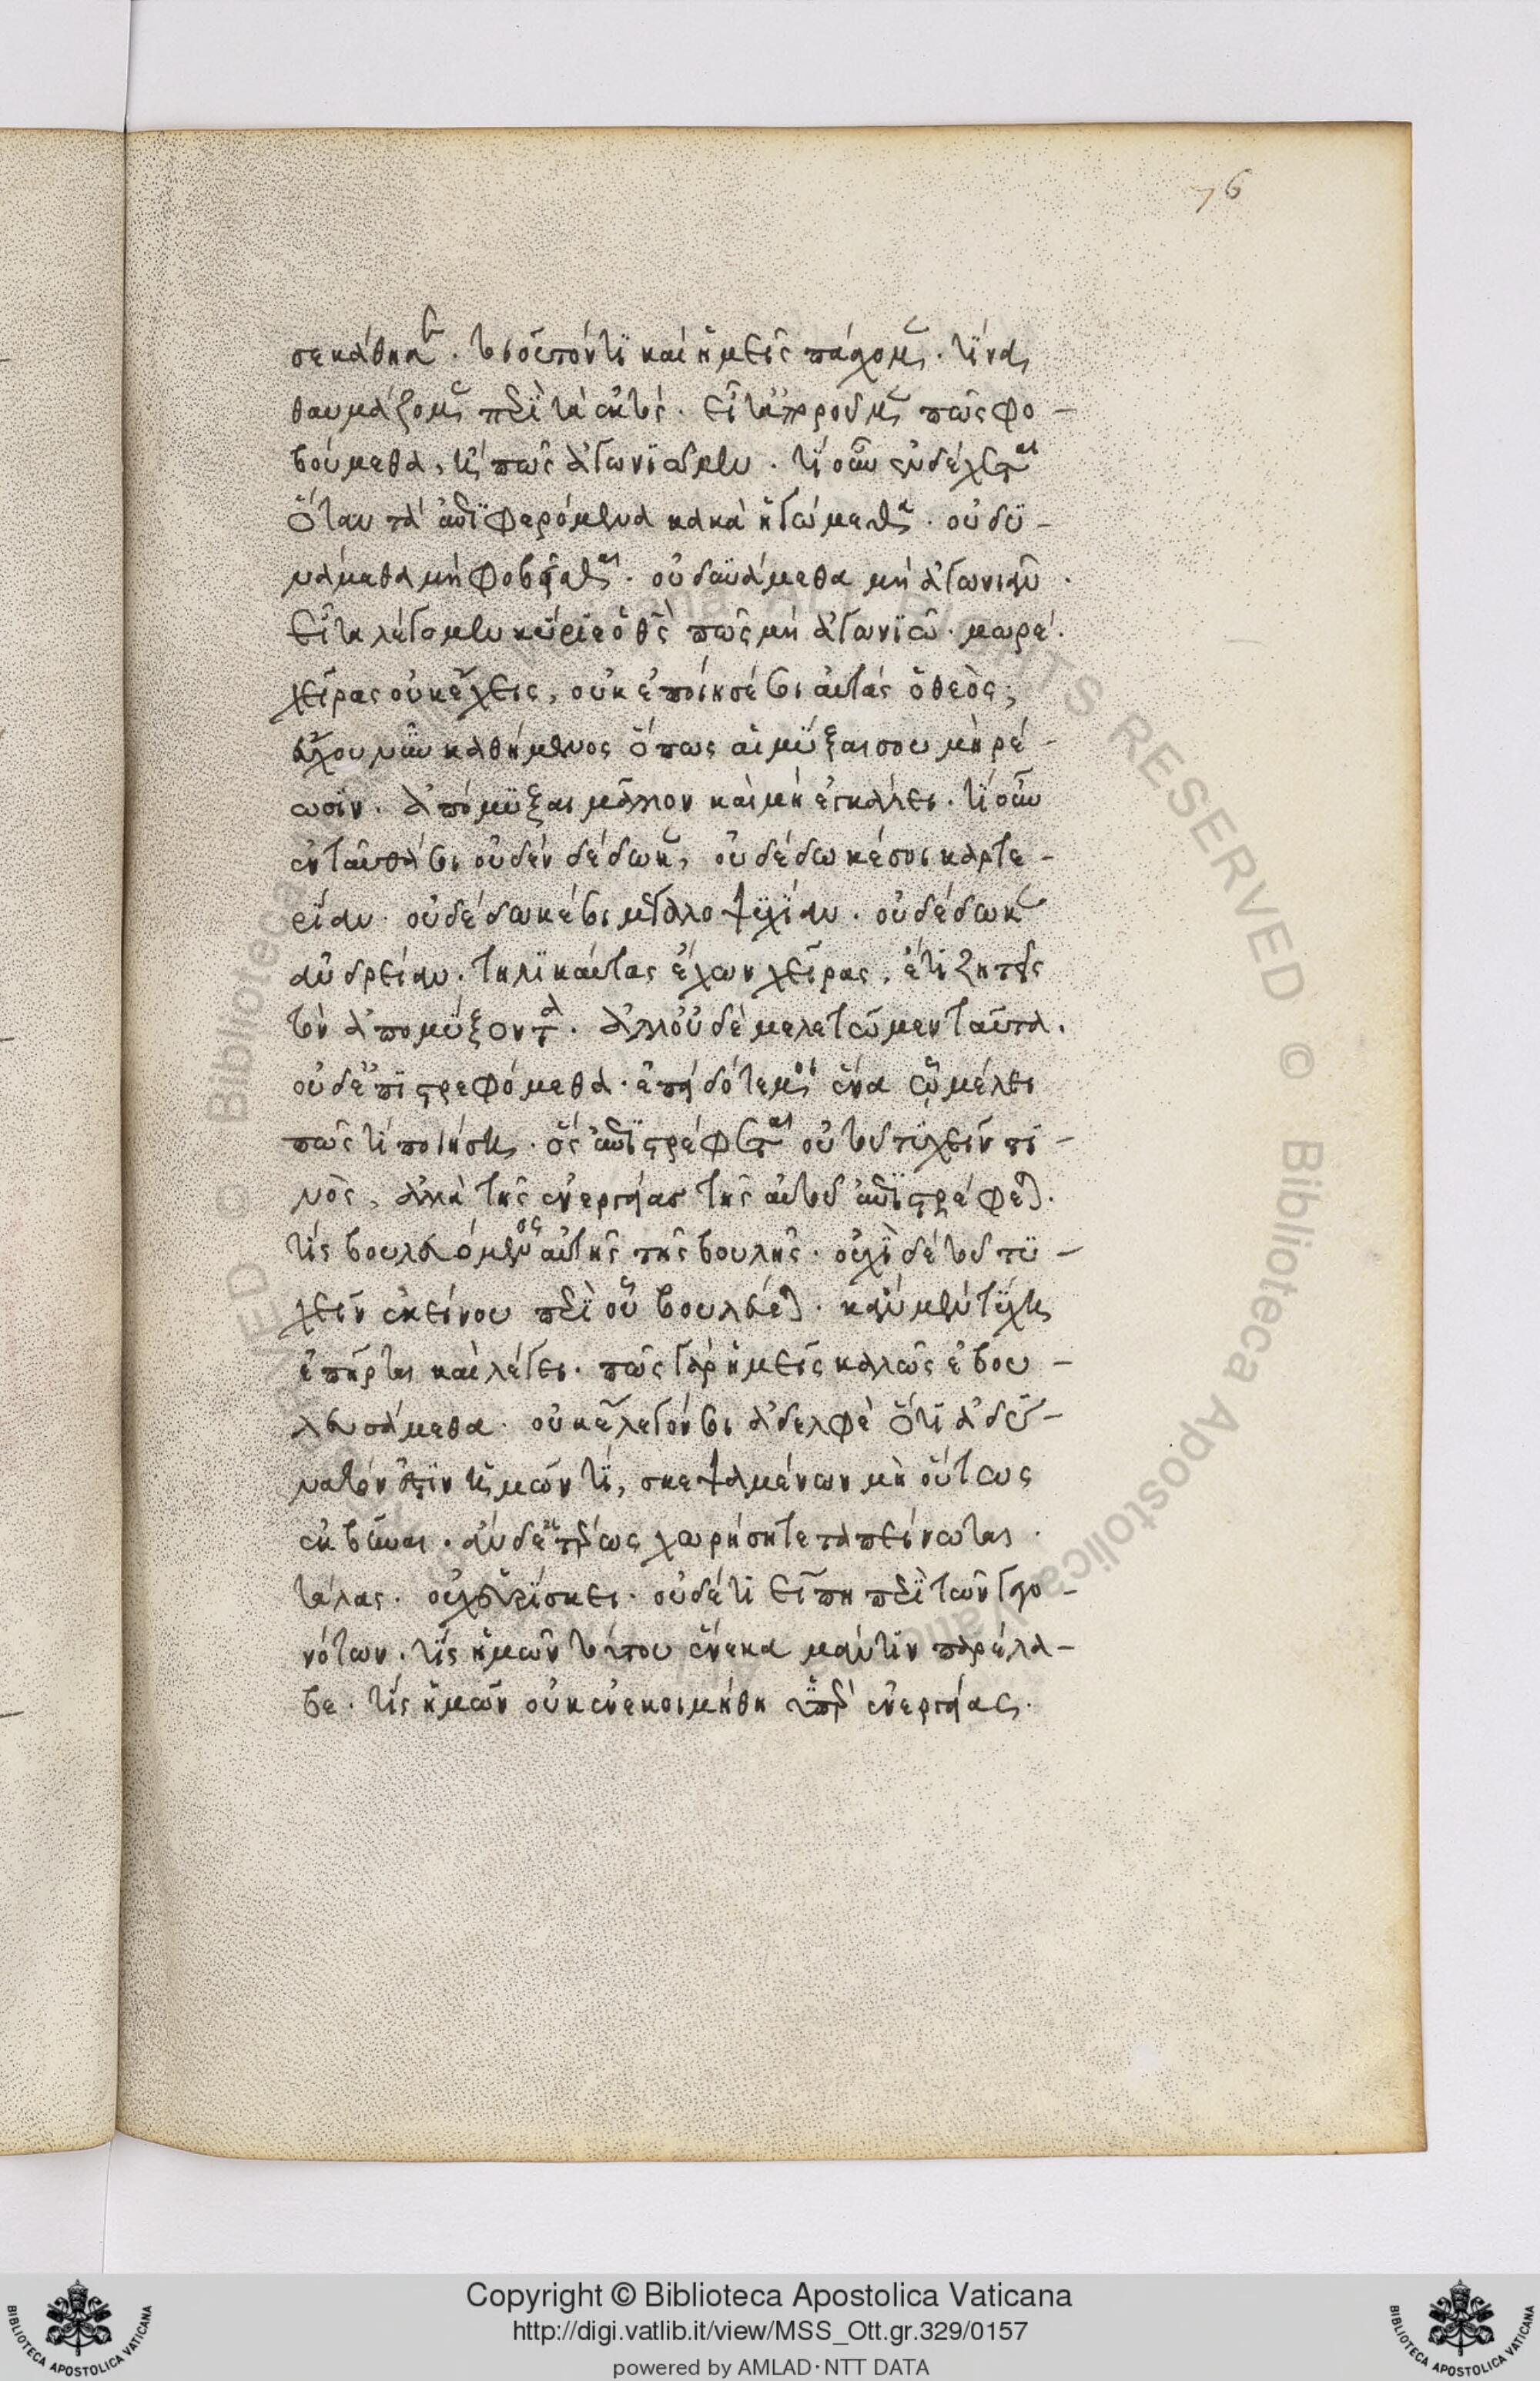 76
σεκάθηται. τοιοῦτόν τι καὶ ἡμεῖς πάσχομεν. τίνας
θαυμάζομεν περὶ τὰ ἐκτός. εἶτα ἀποροῦμεν πῶς φο-
βούμεθα, ἢ πῶς ἀγωνιῶμεν. τί οὖν ἐνδέχεται
ὅταν τὰ ἐπιφερόμενα κακὰ ἡγώμεθα. οὐ δυ-
νάμεθα μὴ φοβεῖσθαι. οὐ δυνάμεθα μὴ ἀγωνιᾶν.
εἶτα λέγομεν κύριε ὁ θς πῶς μὴ ἀγωνιῶ. μωρέ.
χεῖρας οὐκ ἔχεις, οὐκ ἐποίησέ σοι αὐτάς ὁ θεὸς,
εὔχου νῦν καθήμενος ὅπως αἱ μύξαι σου μὴ ῥέ-
ωσιν. ἀπόμυξαι μᾶλλον καὶ μὴ ἐγκάλει. τί οὖν
ἐνταῦθά σοι οὐδὲν δέδωκεν, οὐ δέδωκέ σοι καρτε-
ρίαν. οὐ δέδωκέ σοι μεγαλοψυχίαν. οὐ δέδωκεν
ἀνδρείαν. τηλικαύτας ἔχων χεῖρας, ἔτι ζητεῖς
τὸν ἀπομύξοντα. ἀλλ' οὐδὲ μελετῶμεν ταῦτα.
οὐδ' ἐπιστρεφόμεθα. ἐπεὶ δότε μοι ἕνα ᾧ μέλει
πῶς τι ποιήσῃ. ὃς ἐπιστρέφεται οὐ τοῦ τυχεῖν τι-
νὸς, ἀλλὰ τῆς ἐνεργείας τῆς αὐτοῦ ἐπιστρέφεται.
τίς βουλευόμενος αὐτῆς τῆς βουλῆς. οὐχὶ δὲ τοῦ τυ-
χεῖν ἐκείνου περὶ οὗ βουλεύεται. κἂν μὲν τύχῃ
ἐπῆρται καὶ λέγει. πῶς γὰρ ἡμεῖς καλῶς ἐβου-
λευσάμεθα. οὐκ ἔλεγόν σοι ἀδελφὲ ὅτι ἀδύ-
νατόν ἐστιν ἡμῶν τι, σκεψαμένων μὴ οὕτως
ἐκβῆναι. ἂν δ' ἑτέρως χωρήσῃ τεταπείνωται
τάλας. οὐχ εὑρίσκει. οὐδέ τι εἴπῃ περὶ τῶν γεγο-
νότων. τίς ἡμῶν τούτου ἕνεκα μάντιν παρέλα-
βε. τίς ἡμῶν οὐκ ἐνεκοιμήθη ὑπὲρ ἐνεργείας.
Copyright © Biblioteca Apostolica Vaticana
http://digi.vatlib.it/view/MSS_Ott.gr.329/0157
powered by AMLAD·NTT DATA